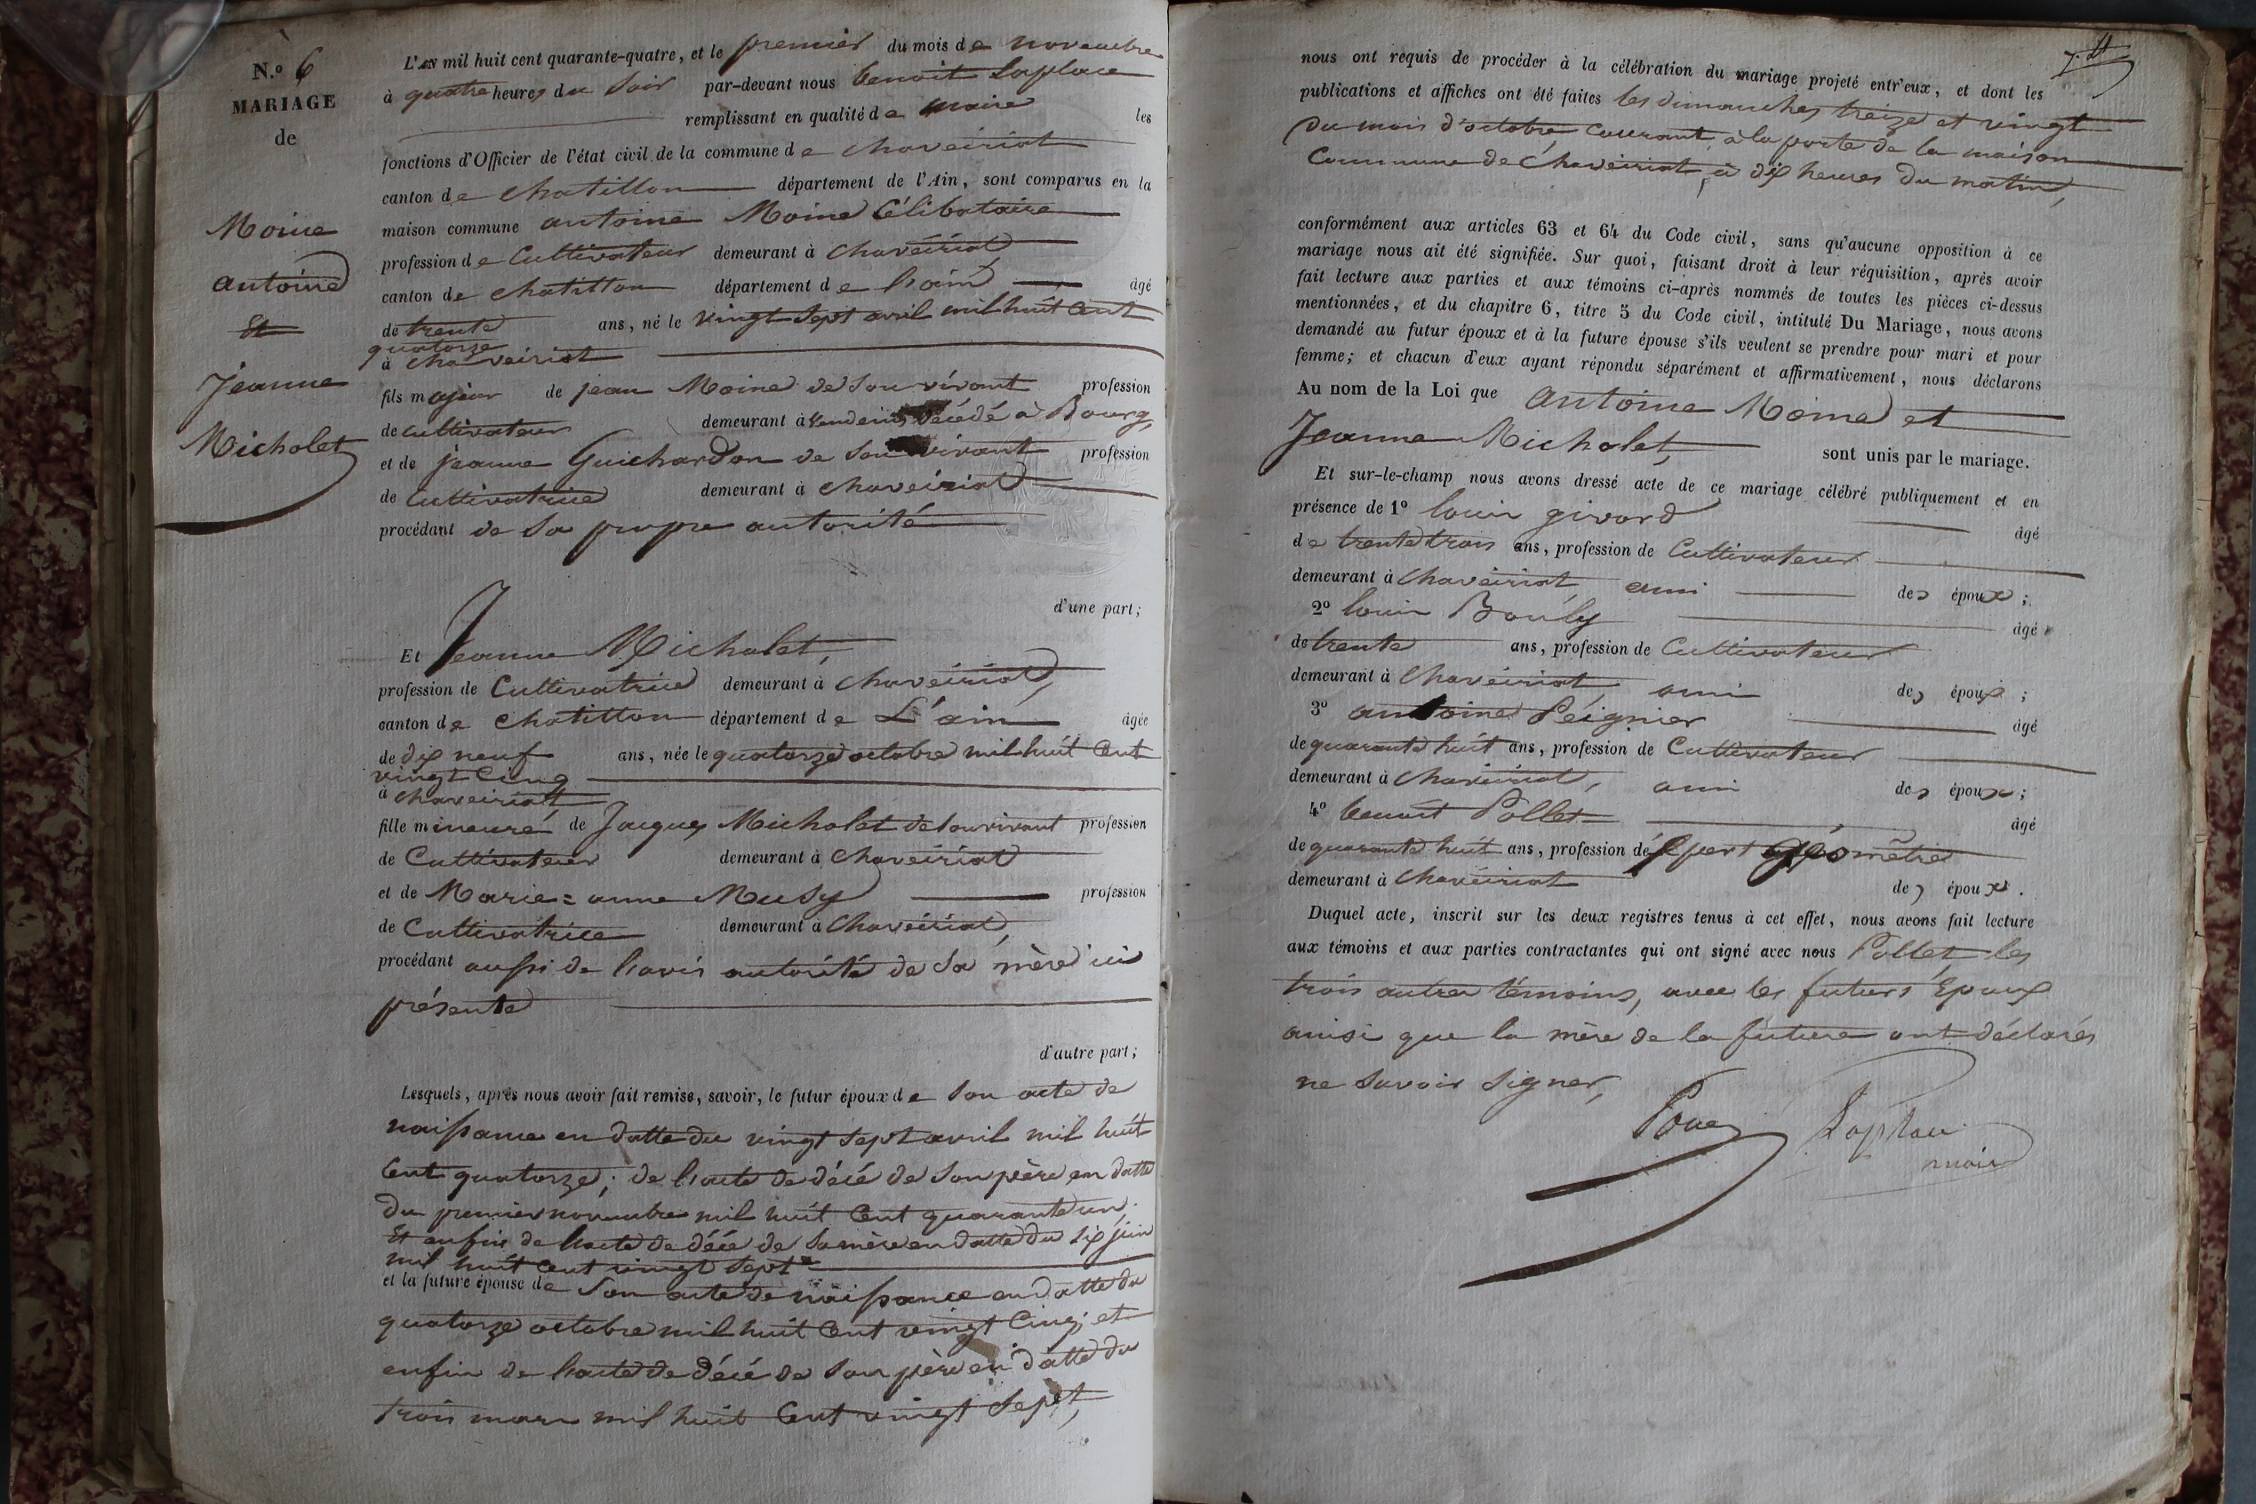 N.o 6
MARIAGE
de
Moine
antoine
Et
Jeanne
Micholet
L'AN mil huit cent quarante-quatre, et le premier du mois de novembre
à quatre heures du soir par-devant nous benoit Laplace
remplissant en qualité de maire les
fonctions d'Officier de l'état civil de la commune de chaveiriat
canton de chatillon département de l'Ain, sont comparus en la
maison commune antoine Moine Célibataire
profession de Cultivateur demeurant à chavéiriat
canton de chatillon département de l'ain âgé
de trente ans, né le vingt sept avril mil huit Cent
quatorze
à chaveiriat
fils majeur de jean Moine de son vivant profession
de cultivateur demeurant à décédé à Bourg,
et de jeanne Guichardon de son vivant profession
de Cultivatrice demeurant à chaveiriat
procédant de sa propre autorité
d'une part;
Et Jeanne Micholet,
profession de Cultivatrice demeurant à chaveiriat,
canton de chatillon département de L'ain âgée
de dix neuf ans, née le quatorze octobre mil huit Cent
vingt Cinq
à chaveiriat
fille mineure de Jacques Micholet de son vivant profession
de Cultivateur demeurant à chaveiriat
et de Marie=anne Musy profession
de Cultivatrice demeurant à Chavéiriat,
procédant aussi de l'avis autorité de sa mère ici
présente
d'autre part;
Lesquels, après nous avoir fait remise, savoir, le futur époux de son acte de
naissance en datte du vingt sept avril mil huit
Cent quatorze; de l'acte de décé de son père en datte
du premier novembre mil huit Cent quarante un;
Et enfin de l'acte de décé de sa mère en datte du six juin
mil huit cent vingt sept
et la future épouse de son acte de naissance en datte du
quatorze octobre mil huit Cent vingt Cinq; et
enfin de l'acte de décé de son père en datte du
trois mars mil huit Cent vingt sept,
nous ont requis de procéder à la célébration du mariage projeté entr'eux, et dont les
publications et affiches ont été faites les dimanches treize et vingt
du mois d'octobre courant, à la porte de la maison
Commune de Chaveiriat, à dix heures du matin,
conformément aux articles 63 et 64 du Code civil, sans qu'aucune opposition à ce
mariage nous ait été signifiée. Sur quoi, faisant droit à leur réquisition, après avoir
fait lecture aux parties et aux témoins ci-après nommés de toutes les pièces ci-dessus
mentionnées, et du chapitre 6, titre 5 du Code civil, intitulé Du Mariage, nous avons
demandé au futur époux et à la future épouse s'ils veulent se prendre pour mari et pour
femme; et chacun d'eux ayant répondu séparément et affirmativement, nous déclarons
Au nom de la Loi que antoine Moine et
Jeanne Micholet, sont unis par le mariage.
Et sur-le-champ nous avons dressé acte de ce mariage célébré publiquement et en
présence de 1o louis givord âgé
de trente trois ans, profession de Cultivateur
demeurant à chaveiriat, ami des époux;
2o louis Bouly âgé
de trente ans, profession de Cultivateur
demeurant à Chaveiriat, ami des époux;
3o antoine Péignier âgé
de quarante huit ans, profession de Cultivateur
demeurant à chaveiriat, ami des époux;
4o benoit Pollet âgé
de quarante huit ans, profession de expert géomètre
demeurant à Chavéiriat des époux.
Duquel acte, inscrit sur les deux registres tenus à cet effet, nous avons fait lecture
aux témoins et aux parties contractantes qui ont signé avec nous Pollet les
trois autres témoins, avec les futurs Epoux
ainsi que la mère de la future ont déclarés
ne savoir signer,
Laplace
maire